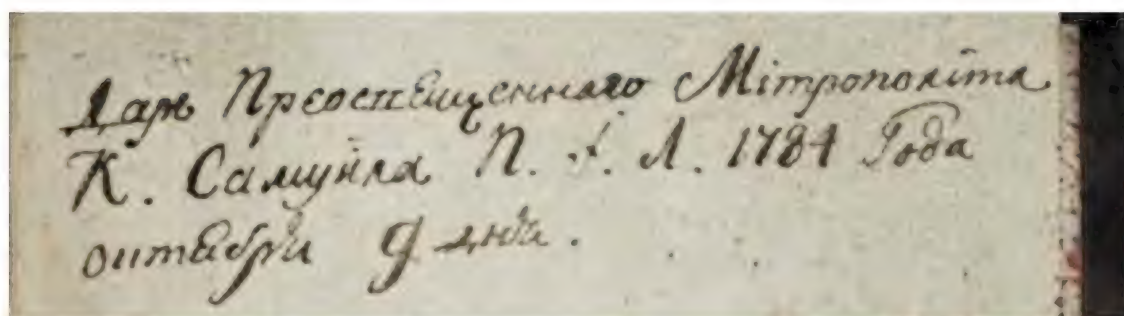 Даръ Преосвященнаго Мітрополіта
К. Самуила П. І. Л. 1784 Года
октября 9 дня.